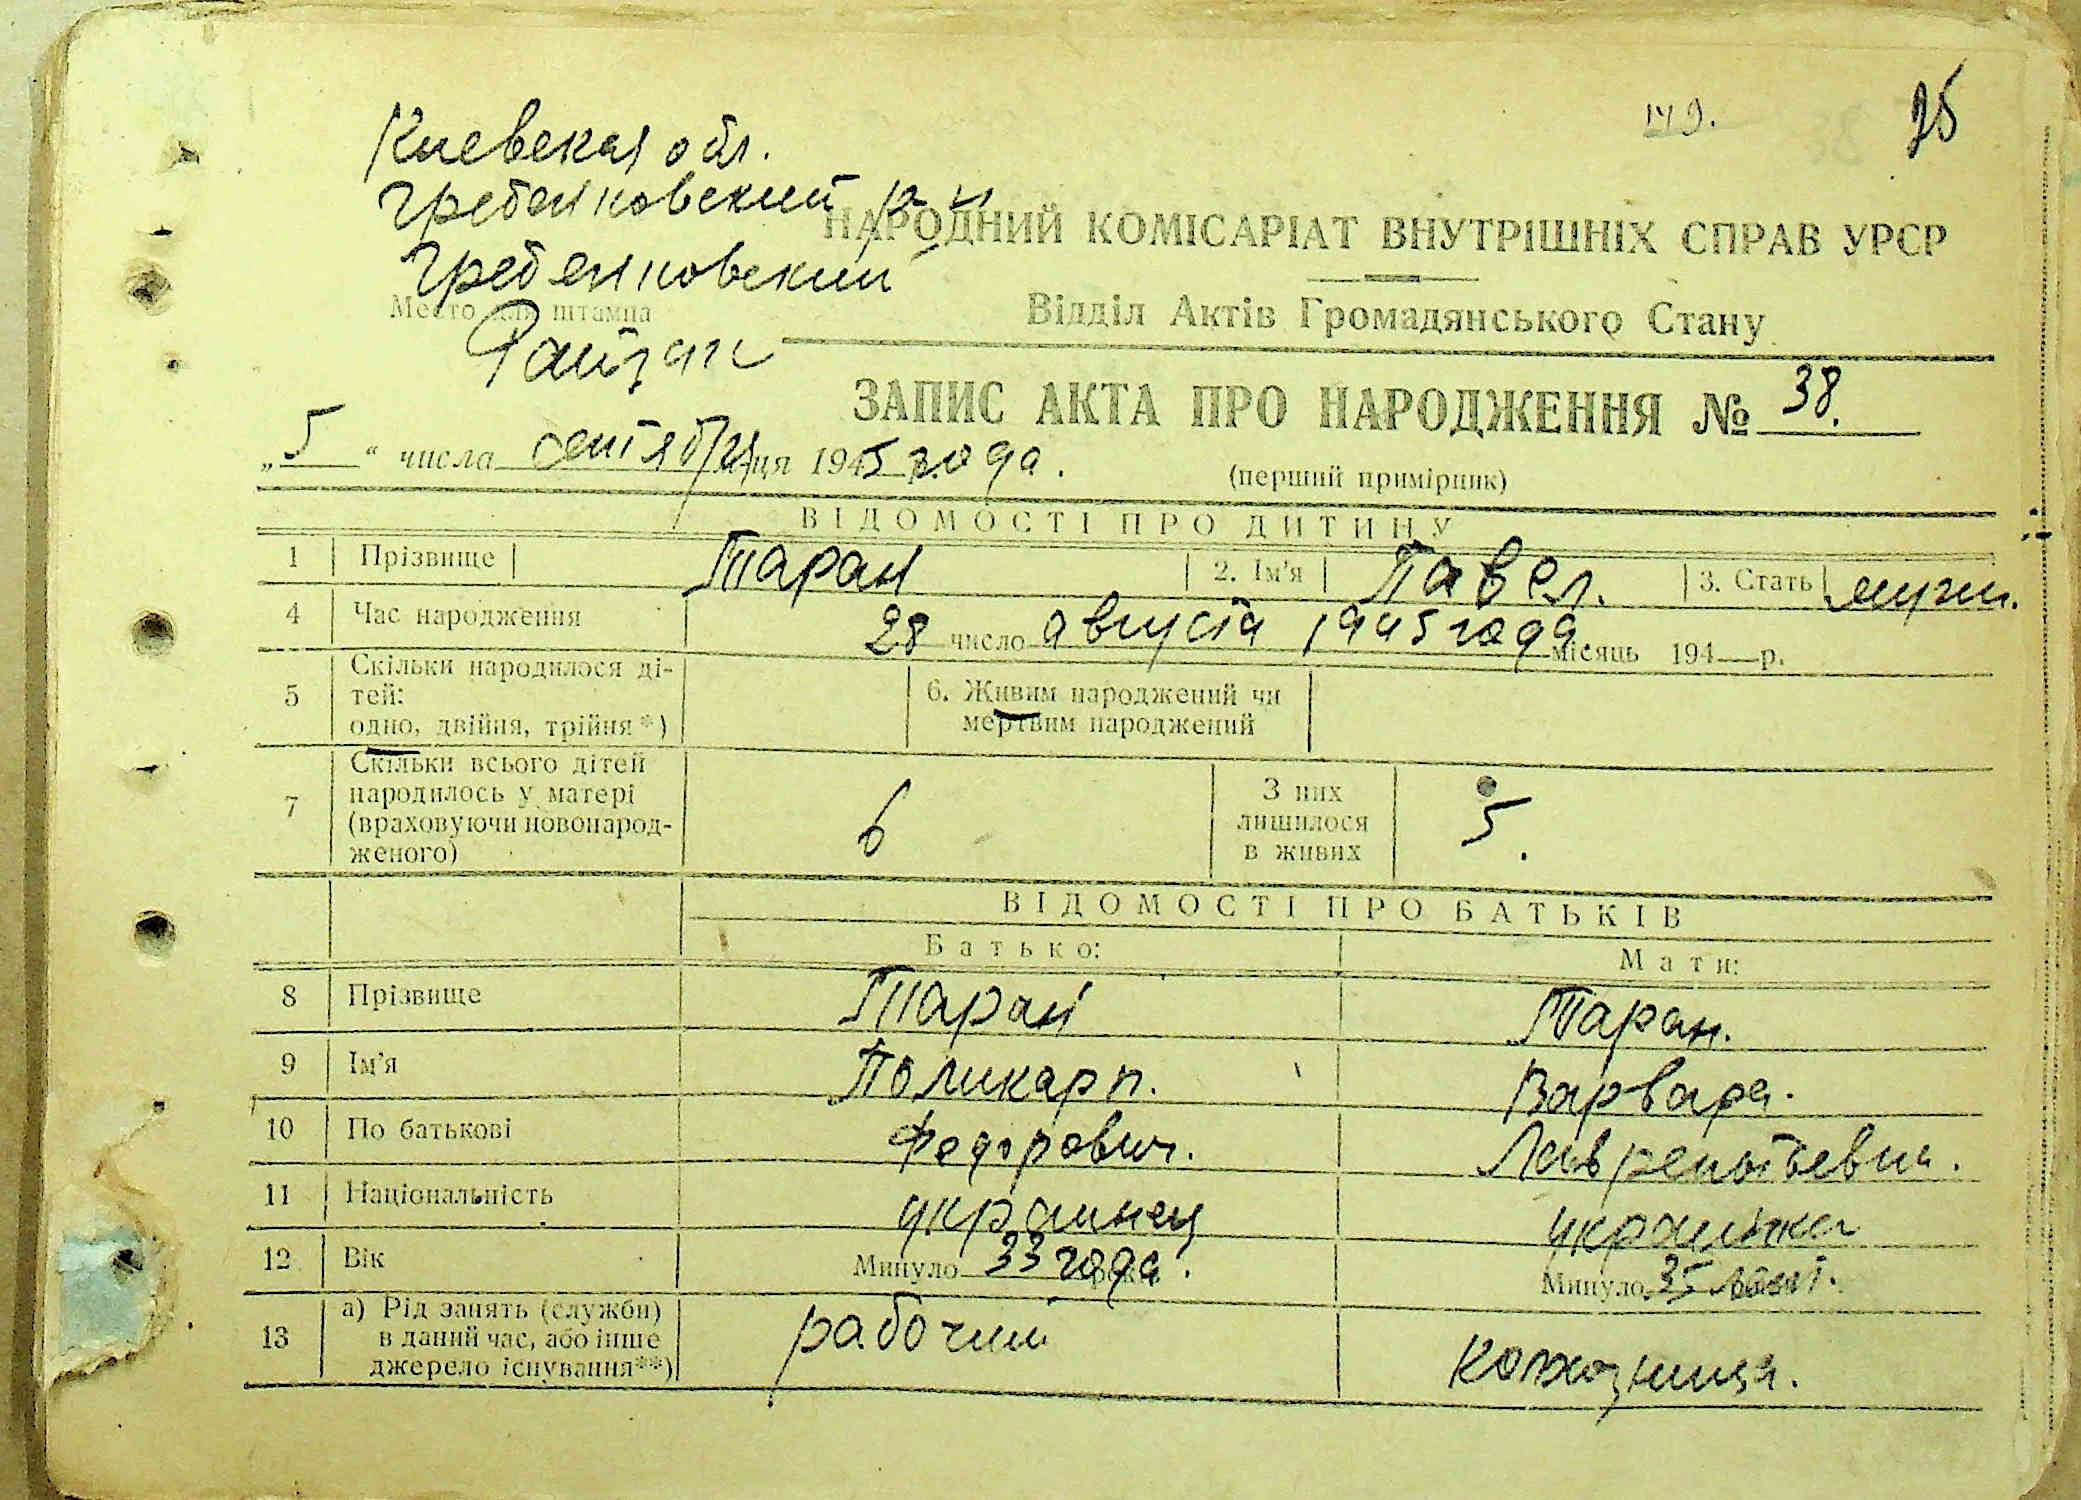 Киевская обл.
Гребенковский р-н
Гребенковский
Райзаг
Место для штампа
38
НАРОДНИЙ КОМІСАРІАТ ВНУТРІШНІХ СПРАВ УРСР
Відділ Актів Громадянського Стану
ЗАПИС АКТА ПРО НАРОДЖЕННЯ № 38.
„5“ числа сентября ця 1945 года.
(перший примірник)
ВІДОМОСТІ ПРО ДИТИНУ
1 Прізвище Таран 2. Ім'я Павел. 3. Стать муж.
4 Час народження 28 число августа 1945 года місяць 194 р.
5 Скільки народилося ді-
тей:
одно, двійня, трійня*)
6. Живим народжений чи
мертвим народжений
7 Скільки всього дітей
народилось у матері
(враховуючи новонарод-
женого)
6
З них
лишилося
в живих
5.
ВІДОМОСТІ ПРО БАТЬКІВ
Батько: Мати:
8 Прізвище Таран Таран.
9 Ім'я Поликарп. Варвара.
10 По батькові Федорович. Лаврентьевна.
11 Національність украинец украинка
12 Вік Минуло 33 года. Минуло 35 лет.
13 а) Рід занять (служби)
в даний час, або інше
джерело існування**)
рабочий колхозница.